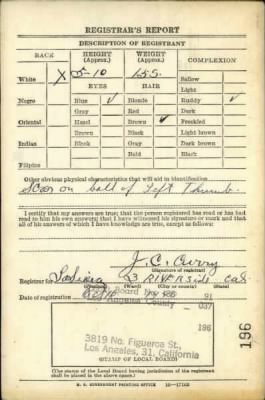 REGISTRAR'S REPORT
DESCRIPTION OF REGISTRANT
RACE HEIGHT (Approx.) WEIGHT (Approx.) COMPLEXION
White X 5-10 155 Sallow
Light
EYES HAIR
Negro Blue ✓ Blonde Ruddy ✓
Gray Red Dark
Oriental Hazel Brown ✓ Freckled
Brown Black Light brown
Indian Black Gray Dark brown
Bald Black
Filipino
Other obvious physical characteristics that will aid in identification
Scar on ball of left Thumb.
I certify that my answers are true; that the person registered has read or has had
read to him his own answers; that I have witnessed his signature or mark and that
all of his answers of which I have knowledge are true, except as follows:
J. C. Curry
(Signature of registrar)
Registrar for 23 RIVERSIDE Cal
(Precinct) (Ward) (City or county) (State)
Date of registration
Board No. 196 91
Los Angeles County 037
196
3819 No. Figueroa St.,
Los Angeles, 31, California
(STAMP OF LOCAL BOARD)
(The stamp of the Local Board having jurisdiction of the registrant
shall be placed in the above space.)
U. S. GOVERNMENT PRINTING OFFICE 16—17105
196